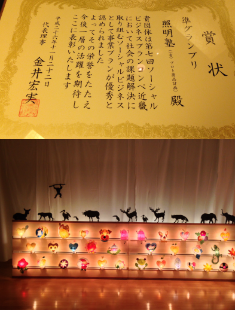 準グランプリ
賞状
照明塾
殿
貴団体は第七回ソーシャル
ビジネスプランコンペ近畿
において社会の課題解決に
取り組むソーシャルビジネス
として事業プランが優秀と
認められました
よってその栄誉をたたえ
今後一層の活躍を期待し
ここに表彰いたします
平成二十六年十一月二十二日
代表理事 金井宏実